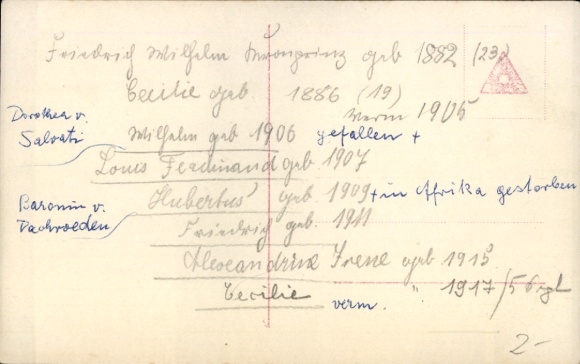 Friedrich Wilhelm Kronprinz geb 1882 (23)
Cecilie geb. 1886 (19)
Verm 1905
Dorothea v. Salvati
Wilhelm geb 1906 gefallen +
Louis Ferdinand geb 1907
Hubertus geb 1909 + in Afrika gestorben
Baronin v. Dachroeden
Friedrich geb. 1911
Alexandrine Irene geb 1915
Cecilie " 1917
verm.
2-